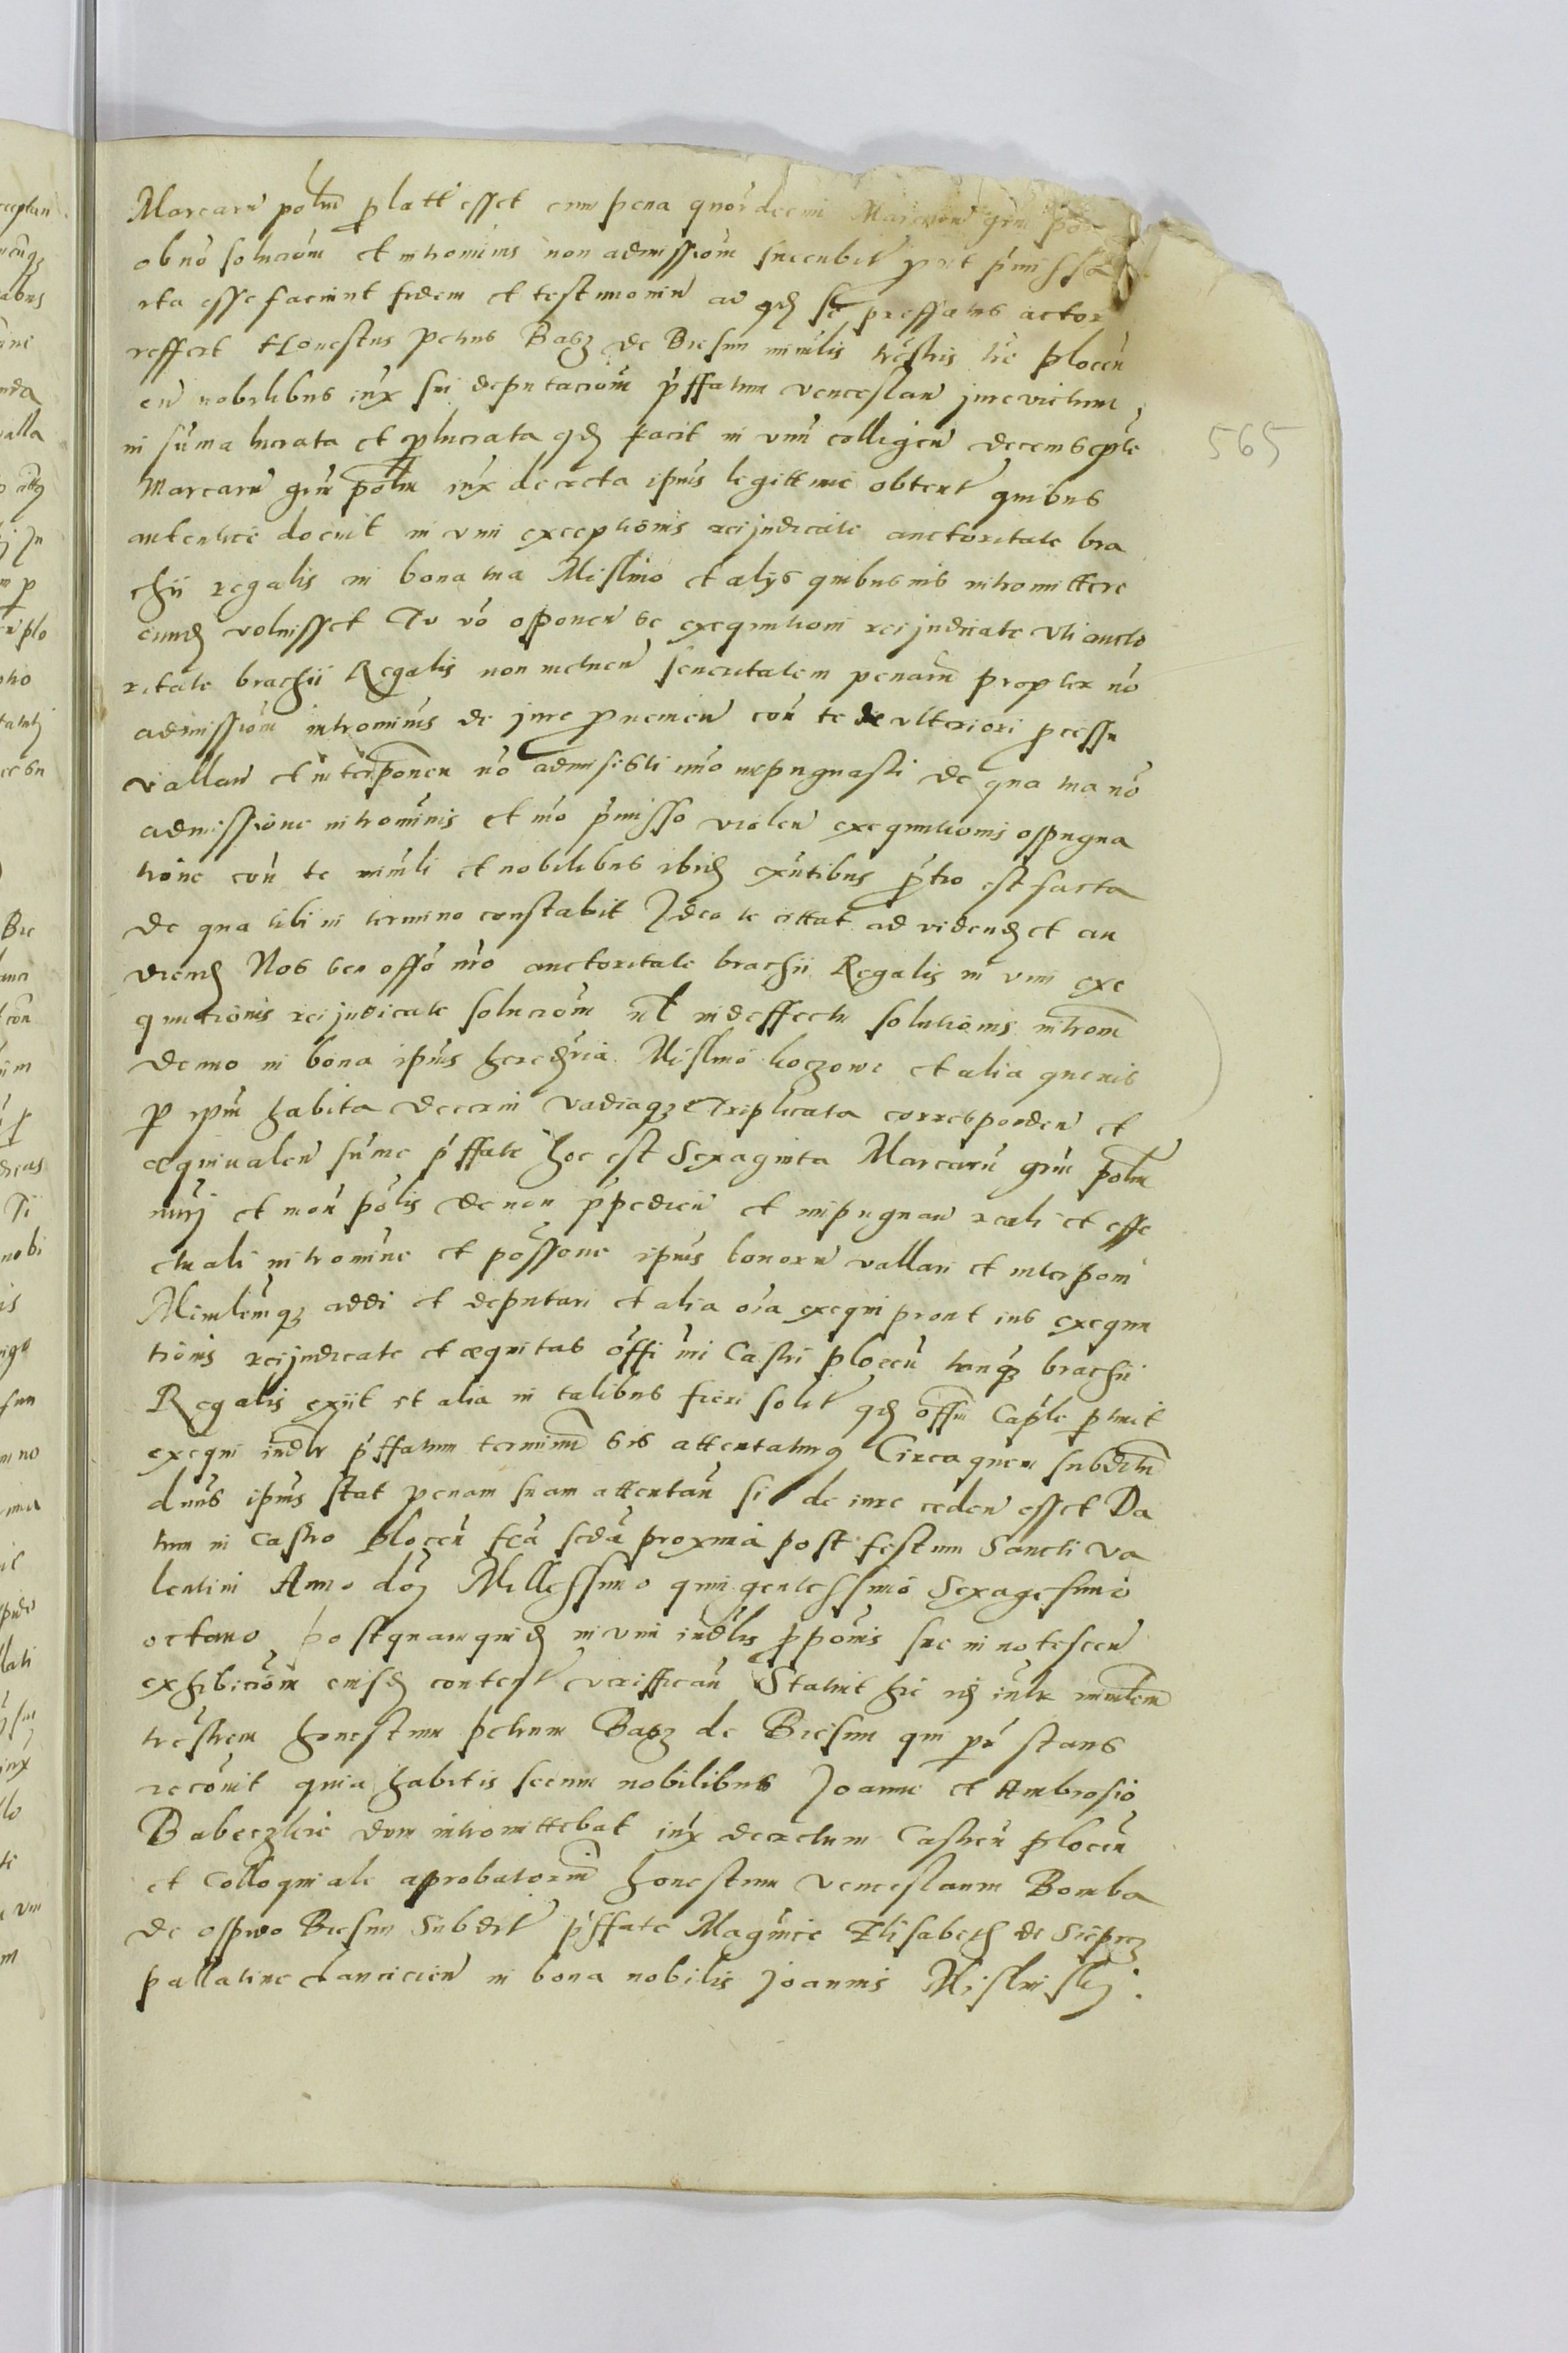 Marcarũ polm̃ p latt esset cum pena quõrdecim Marcarũ grm̃ po
ob nõ solucioñm et intromiñis non admissioñm succubit prout p̃missa
ita esse faciunt fidem et testimoniũ ad qd̃ se preffatus actor
reffert Honestus petrus Basz de Biesun miñlis trẽstris tr̃e plocen̄
cũ nobilibus iux̃ sui deputacioñm p̃ffatum venceslaũ jurevictum
in sũma lucrata et plucrata qd̃ facit in vnũ colligeñ decemseptẽ
Marcarũ grm̃ polm̃ iux̃ decreta ipiũs legittime obtent quibus
autentice docuit in vim exceptionis rei judicate auctoritate bra
chii regalis in bona tua Mislino et alys quibusuis intromittere
eund̃ voluisset Tu võ oponeñ se exequutioni rei judicate vti aucto
ritate brachii Regalis non metueñ seueritatem penarũ propter nõ
admissioñm intromiñis de jure p̃uenien̄ coñ te de vlteriori pcessu
vallan̄ et interponen̄ nõ admisisti imo repugnasti de qua tua nõ
admissione intromiñis et mõ p̃misso violen̄ exequutionis oppugna
tione coñ te miñli et nobilibus ibid̃ exñtibus p̃tio est facta
de qua tibi in termino constabit Ideo te cittat ad videnđ et au
diend̃ Nos seu offõ nr̃o auctoritate brachii Regalis in vim exe
quutionis rei judicate solucioñm vl in deffectu solutionis introm̃
demo in bona ipiũs heredria Mislino koczowe et alia queuis
p ipm̃ habita decerni vadiaqз triplicata corresponden̄ et
æquiualen̄ sum̃e p̃ffate hoc est Sexaginta Marcarũ grm̃ polm̃
nũj et moñ polis de non p̃pedien̄ et impugnan̄ reali et effe
ctuali intromiñe et possone ipiũs bonorũ vallari et interponi
Miñlemqз addi et deputari et alia oĩa exequi prout ius exequu
tionis rei judicate et æquitas offi nr̃i Castri plocen̄ tanqз brachii
Regalis exiit et alia in talibus fieri solit qd̃ offm̃ Capl̃e ptinet
exequi indlr p̃ffatum terminũ bis attentatumqз Circa quem subditũ
dnũs ipiũs stat penam suam attentan̄ si de iure ceden̄ esset Da
tum in Castro plocen̄ fer̃a scdã proxima post festum Sancti Va
lentini Anno dñj Millessimo quingentessimo Sexagesimo
octauo postquamquid̃ in vim indl̃is p̃põnis sue innotescen̄
exhibicioñm eiusd̃ content verifican̄ Statuit hic id̃ iudr miñlem
trẽstrem honestum petrum Basz de Biesun qui p̃r stans
recoñuit quia habitis secum nobilibus Joanne et Ambrosio
Babeczkie dum intromittebat iux̃ decretum Castren̄ plocen̄
et Colloquiale aprobatoriũ honestum venceslaum Bomba
de oppido Biesun Subdit p̃ffate Magnifice Elisabeth de Sieprcz
pallatine Lancicien̄ in bona nobilis Joannis Mislinskj.
565